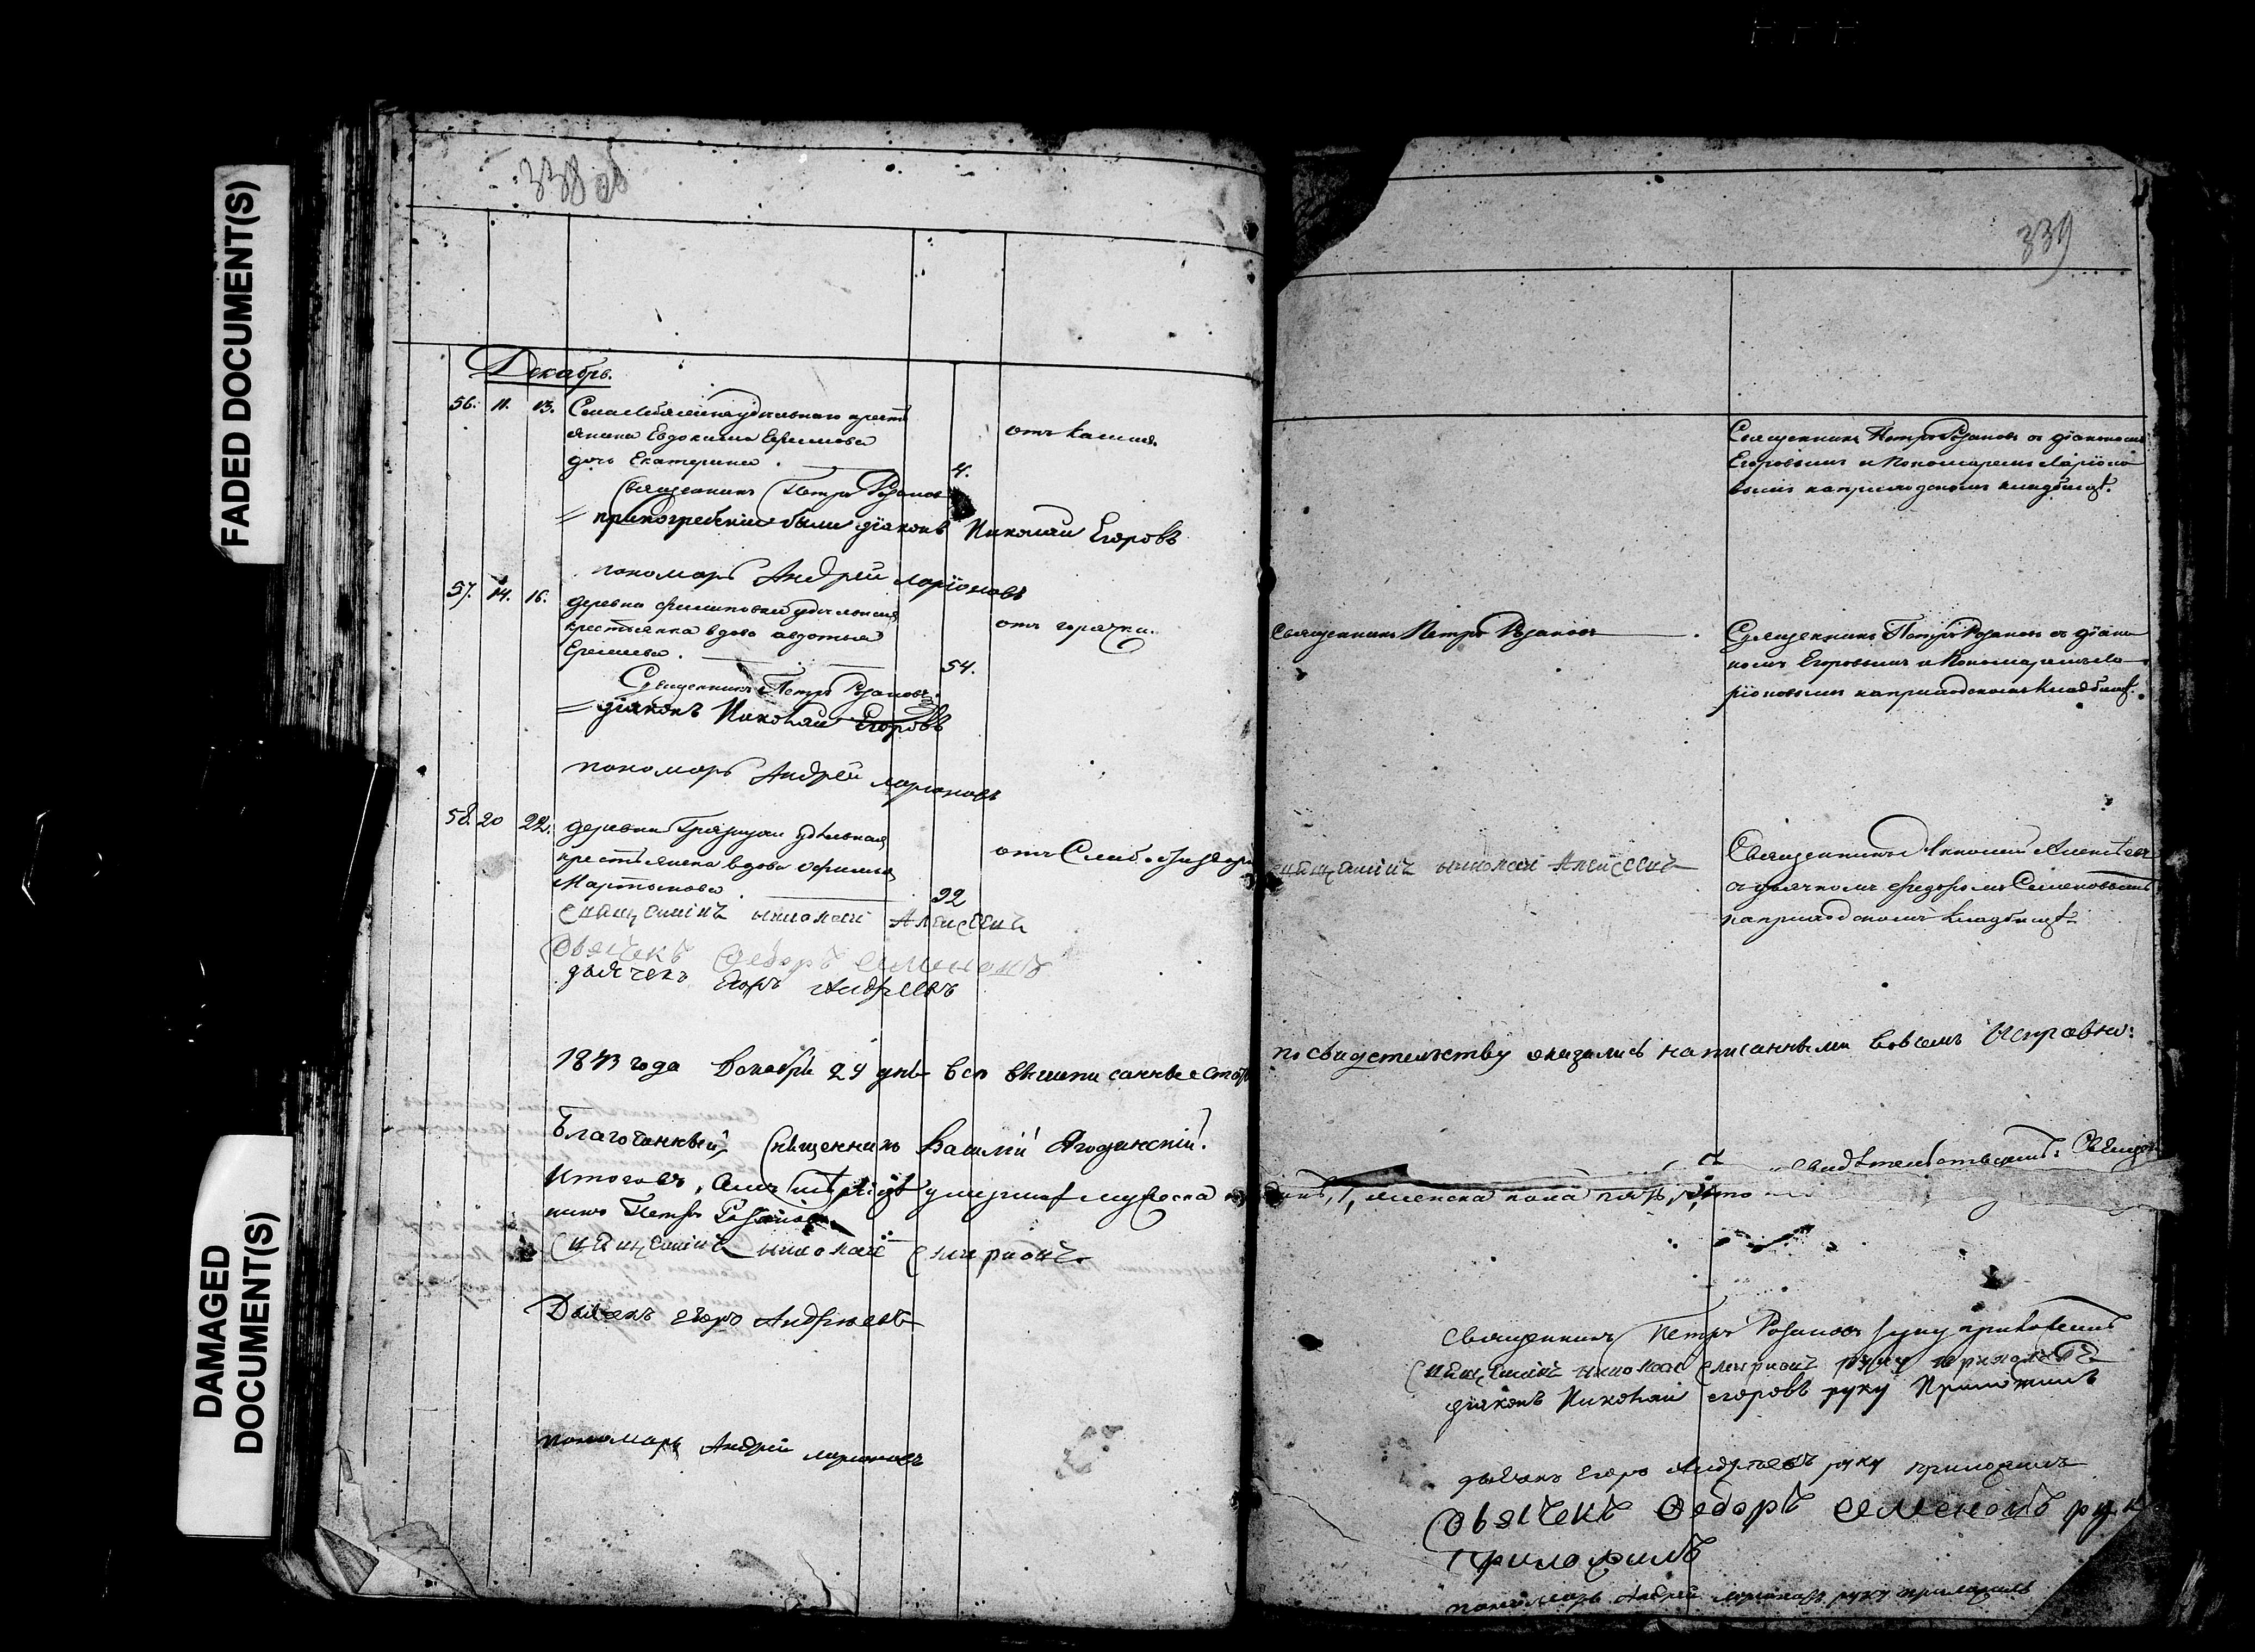 FADED DOCUMENT(S)
DAMAGED DOCUMENT(S)
338 об
Декабрь.
56. 11. 13. Села удельнаго кресть
янина Евдокима Ефимова
дочь Екатерина. 4. отъ кашля
Священникъ Петръ Розановъ
при погребении были диаконъ Николай Егоровъ
пономарь Андрей Ларионовъ
57. 14. 16. деревни Филиповки удельная
крестьянка вдова авдотья
Еремеева. 54. отъ горячки.
Священникъ Петръ Розановъ
диаконъ Николай Егоровъ
пономарь Андрей Ларионовъ
58. 20 22. деревни удельная
крестьянка вдова
Мартынова 92 отъ Слаб.
священникъ николай Алексеевъ
Дьячекъ Федоръ Семеновъ
дьячекъ Егоръ Андреевъ
1843 года Декабря 24 дня все вышеписанные стат
Благочинный, Священникъ Василий Ягодинский.
Итого въ
никъ Петръ Розановъ
священникъ николай
Дьячекъ егоръ Андреевъ
пономарь Андрей ларионовъ
339
Священникъ Петръ Розановъ съ диакономъ
Егоровымъ и Пономаремъ Ларионо
вымъ на приходскомъ кладбищѣ.
Священникъ Петръ Розановъ
Священникъ Петръ Розановъ съ диако
номъ Егоровымъ и Пономаремъ Ла
рионовымъ на приходскомъ кладбищѣ.
священникъ николай Алексеевъ
Священникъ Николай Алексеевъ
съ дьячкомъ Федоромъ Семеновымъ
на приходскомъ кладбищѣ
по свидетельству оказались написанными вовсемъ Исправно:
Священникъ Петръ Розановъ руку приложилъ
священникъ николай руку приложилъ
диаконъ Николай егоровъ руку Приложилъ
дьячекъ Егоръ Андреевъ руку приложилъ
Дьячекъ Федоръ Семеновъ руку
Приложилъ
пономарь Андрей ларионовъ руку приложилъ